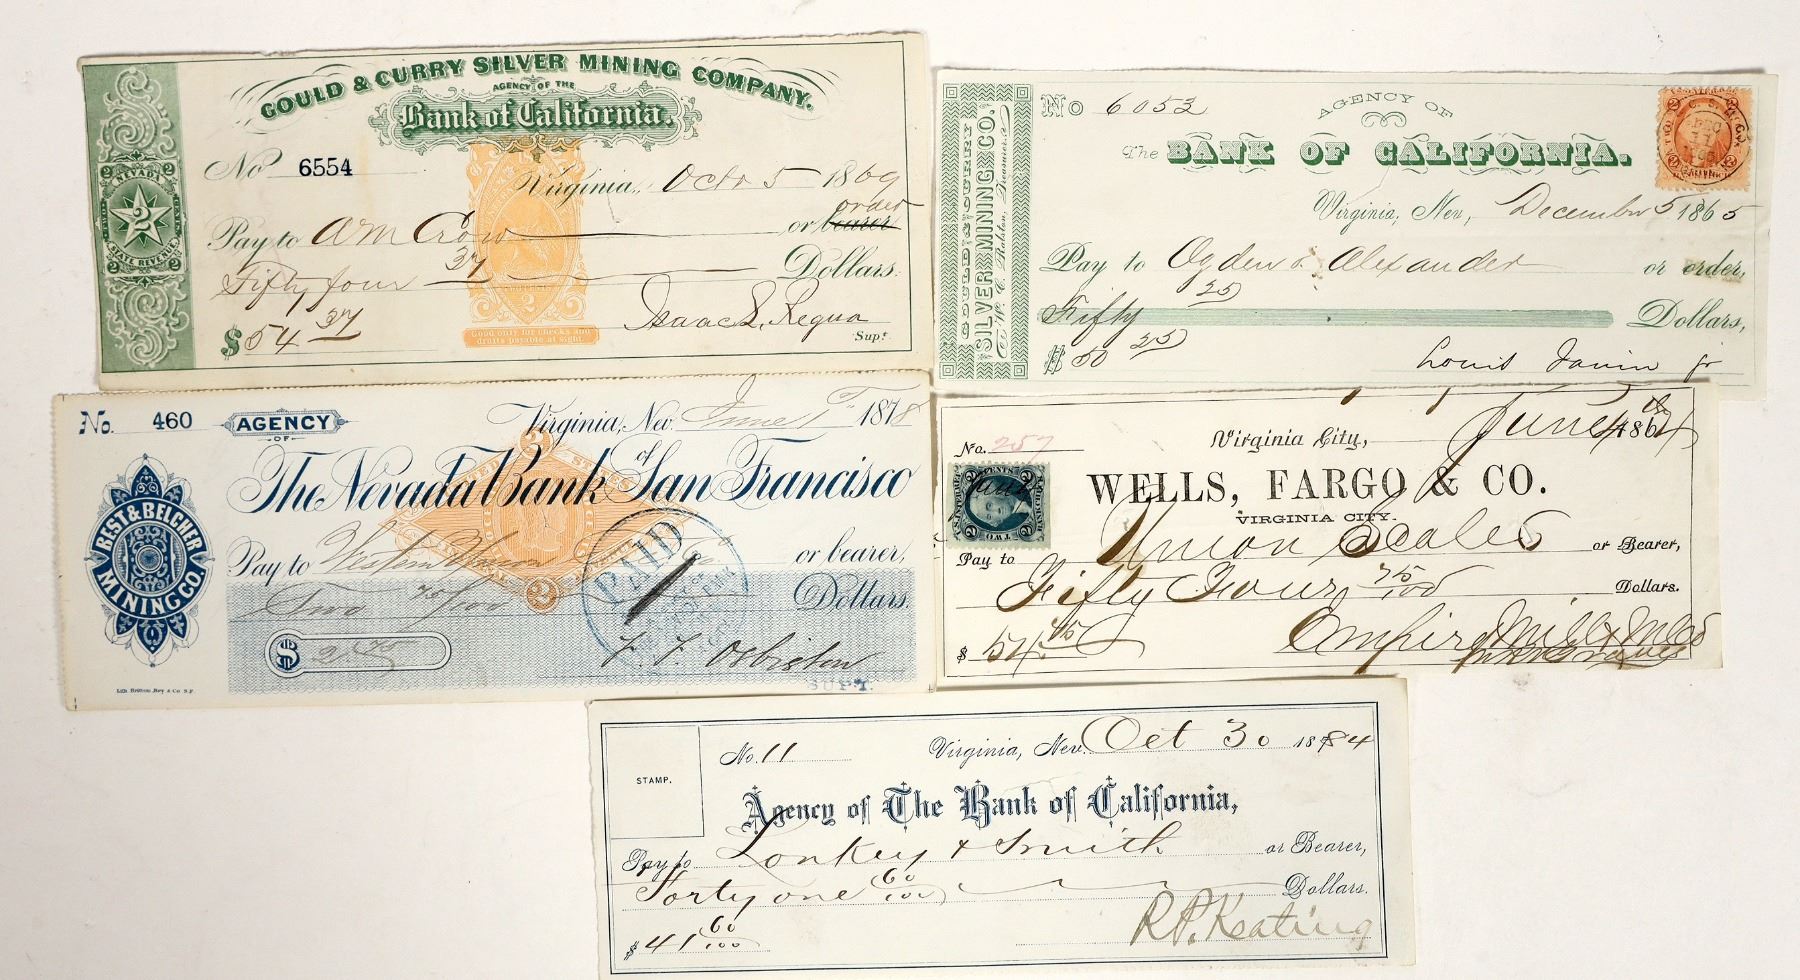 GOULD & CURRY SILVER MINING COMPANY.
AGENCY OF THE
Bank of California.
No 6554
Virginia, Octo 5 1869
order
Pay to A M Crow or bearer
Fifty four 37 Dollars.
$54 37
Isaac L. Requa
Supt.
2 NEVADA 2
2
STATE REVENUE
2 2
2
Good only for checks and
drafts payable at sight.
GOULD & CURRY
SILVER MINING CO.
W. C. Ralston, Treasurer
No 6052
AGENCY OF
The BANK OF CALIFORNIA.
Virginia, Nev, December 5 1865
Pay to Ogden & Alexander or order,
Fifty 25 Dollars,
$50 25
Louis Janin Jr
No. 460
AGENCY
OF
Virginia, Nev. June 1st 1878
The Nevada Bank of San Francisco
BEST & BELCHER
MINING CO.
Pay to Western Union or bearer,
PAID
Two 70/100 Dollars.
$ 2 70
F. F. Osbiston
SUPT.
Lith Britton, Rey & Co S.F.
2
No. 257
Virginia City, June 1864
WELLS, FARGO & CO.
VIRGINIA CITY.
Pay to Union Scales or Bearer,
Fifty Four 75/100 Dollars.
$ 54 75
Empire Mill & M Co
STAMP.
No. 11
Virginia, Nev. Oct 30 1884
Agency of The Bank of California,
Pay to Lonkey & Smith or Bearer,
Forty one 60/100 Dollars.
$ 41 60/100
R. P. Keating